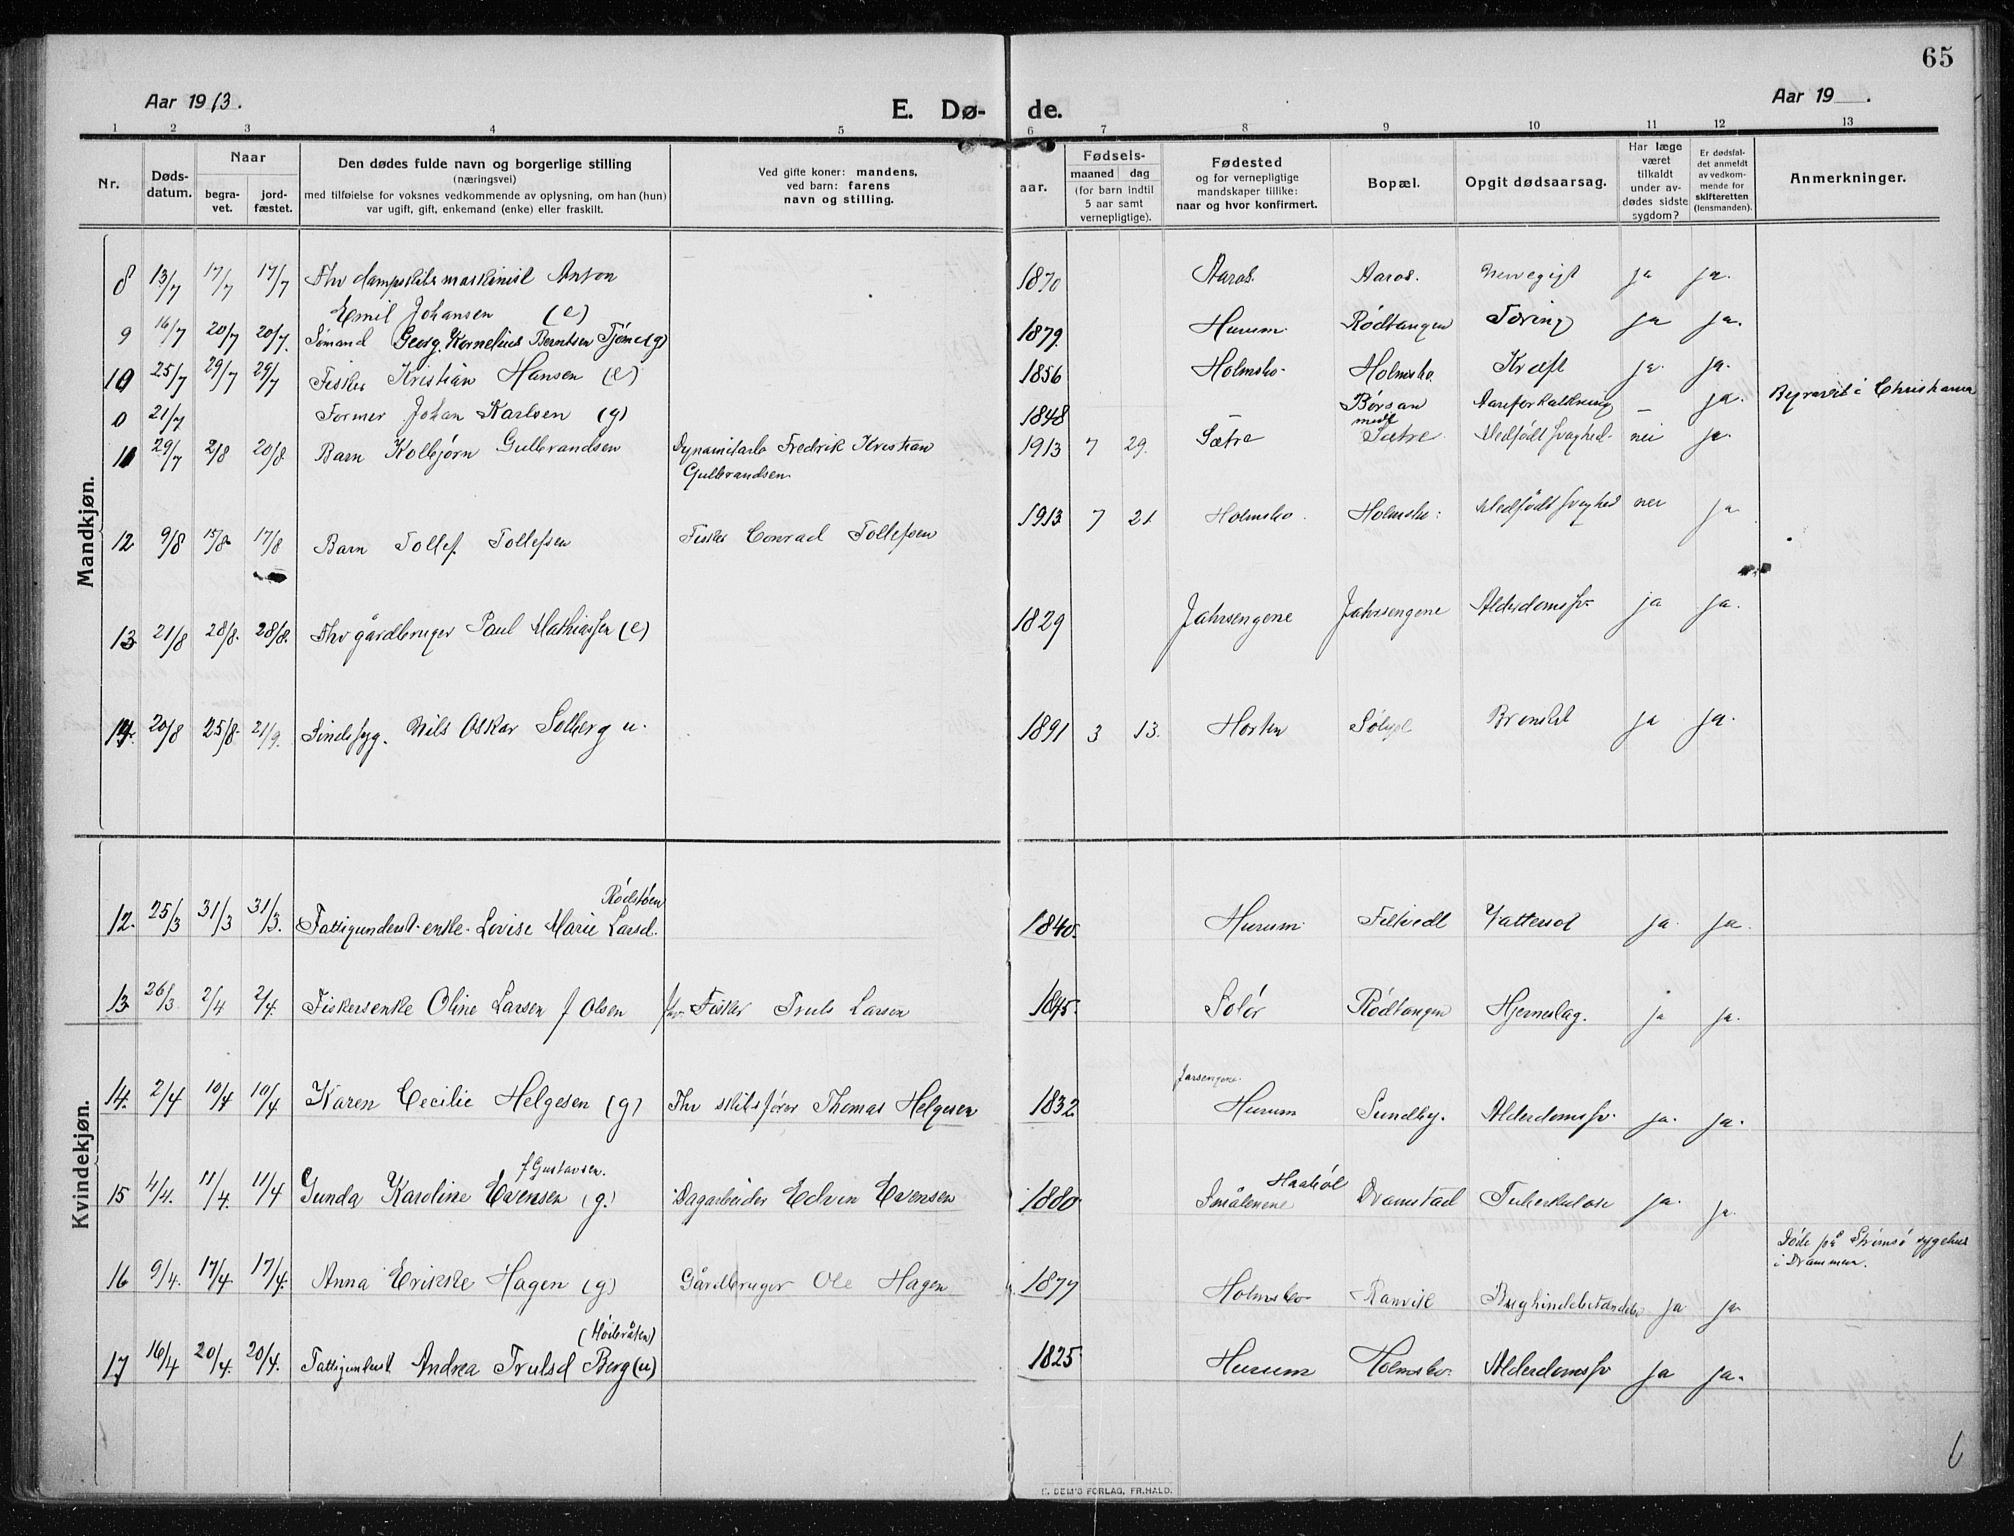 65
Aar 1913.
E. Dø- de.
Aar 19 .
1 2 3 4 5 6 7 8 9 10 11 12 13
Nr.
Døds-
datum.
Naar
begra-
vet.
jord-
fæstet.
Den dødes fulde navn og borgerlige stilling
(næringsvei)
med tilføielse for voksnes vedkommende av oplysning, om han (hun)
var ugift, gift, enkemand (enke) eller fraskilt.
Ved gifte koner: mandens,
ved barn: farens
navn og stilling.
aar.
Fødsels-
maaned dag
(for barn indtil
5 aar samt
vernepligtige).
Fødested
og for vernepligtige
mandskaper tillike:
naar og hvor konfirmert.
Bopæl.
Opgit dødsaarsag.
Har læge
været
tilkaldt
under av-
dødes sidste
sygdom?
Er dødsfal-
det anmeldt
av vedkom-
mende for
skifteretten
(lensmanden).
Anmerkninger.
Mandkjøn.
8 13/7 17/7 17/7 Fhv dampskibsmaskinist Anton 1870 Aaros. Aaros. ja ja.
Emil Johansen (e)
9 16/7 20/7 20/7. Sømand Georg. Kornelius Berntsen Tjöme (g) 1879. Hurum. Rödtangen Tæring ja ja.
10 25/7 29/7 29/7 Fisker Kristian Hansen (e) 1856 Holmsbo. Holmsbo. Kræft ja. ja.
0 21/7 Former Johan Karlsen (g) 1848 – Aareforkalkning – ja. Begravet i Christiania
11 29/7 2/8 20/8. Barn Kolbjørn Gulbrandsen Dynamitarb Fredrik Kristian 1913 7 29. Sætre Sætre. Medfödt svaghed. nei ja.
Gulbrandsen.
12 9/8 15/8. 17/8 Barn Tollef Tollefsen Fisker Conrad Tollefsen 1913 7 21 Holmsbo. Holmsbo. Medfödt svaghed nei ja
13 21/8 28/8. 28/8. Fhv gårdbruger Paul Mathiassen (e) 1829 Jahrsengene Jahrsengene Alderdomssv. ja ja.
14. 20/8 25/8. 21/9. Sindssyg. Nils Oskar Solberg u. 1891 3 13. Horten ja ja.
Kvindekjøn.
Rödstöen
12. 25/3 31/3 31/3. Fattigunderst. enke. Lovise Marie Larsd. 1840. Hurum Filtvedt Vattersot ja. ja.
13 26/3. 2/4 2/4. Fiskersenke Oline Larsen f Olsen fhv. Fisker Truls Larsen 1845. Solör Rödtangen Hjerneslag. ja ja.
Jarsengene.
14. 2/4 10/4 10/4 Karen Cecilie Helgesen (g) Fhv skibsfører Thomas Helgesen 1832 Hurum Sundby. Alderdomssv. ja. ja.
f Gustavsen.
15 4/4. 11/4. 11/4 Gunda Karoline Evensen (g.) Dagarbeider Edvin Evensen 1880 Smålenene Haaböl Dramstad Tuberkulose ja. ja.
Döde på Strömsö sygehus
i Drammen.
16 9/4. 17/4. 17/4. Anna Erikke Hagen (g) Gårdbruger Ole Hagen 1877 Holmsbo Ranvik Bughindebetændelse ja ja
(Höibråten)
17 16/4 20/4. 20/4. Fattigunderst Andrea Trulsd Berg (u) 1825. Hurum Holmsbo. Alderdomssv ja ja.
E. DEM'S FORLAG, FR.HALD.